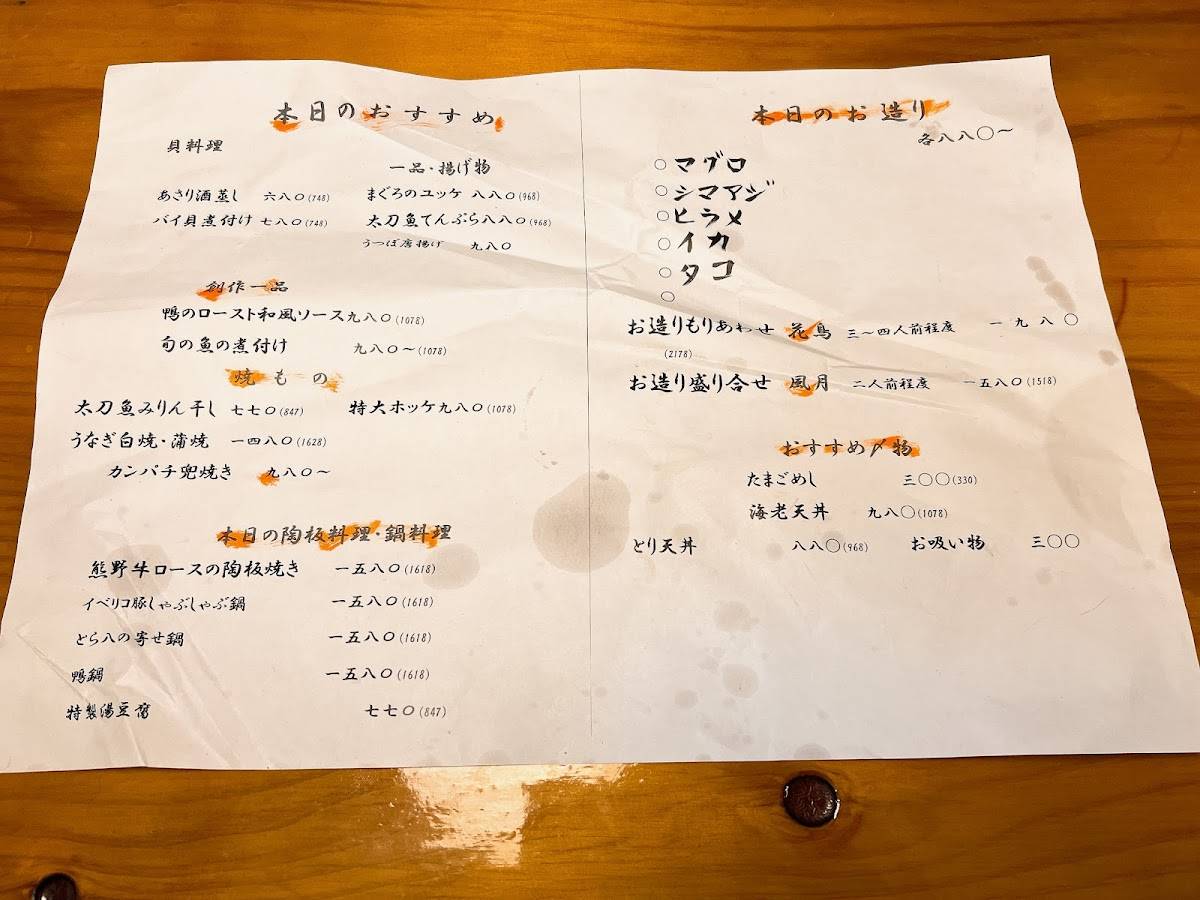 本日のおすすめ
貝料理
一品・揚げ物
あさり酒蒸し 六八〇(748)
まぐろのユッケ 八八〇(968)
バイ貝煮付け 七八〇(748)
太刀魚てんぷら八八〇(968)
うつぼ唐揚げ 九八〇
創作一品
鴨のロースト和風ソース九八〇(1078)
旬の魚の煮付け 九八〇～(1078)
焼もの
太刀魚みりん干し 七七〇(847)
特大ホッケ九八〇(1078)
うなぎ白焼・蒲焼 一四八〇(1628)
カンパチ兜焼き 九八〇～
本日の陶板料理・鍋料理
熊野牛ロースの陶板焼き 一五八〇(1618)
イベリコ豚しゃぶしゃぶ鍋 一五八〇(1618)
とら八の寄せ鍋 一五八〇(1618)
鴨鍋 一五八〇(1618)
特製湯豆腐 七七〇(847)
本日のお造り
各八八〇～
○マグロ
○シマアジ
○ヒラメ
○イカ
○タコ
○
お造りもりあわせ 花鳥 三～四人前程度 一九八〇
(2178)
お造り盛り合せ 風月 二人前程度 一五八〇(1518)
おすすめ〆物
たまごめし 三〇〇(330)
海老天丼 九八〇(1078)
とり天丼 八八〇(968)
お吸い物 三〇〇